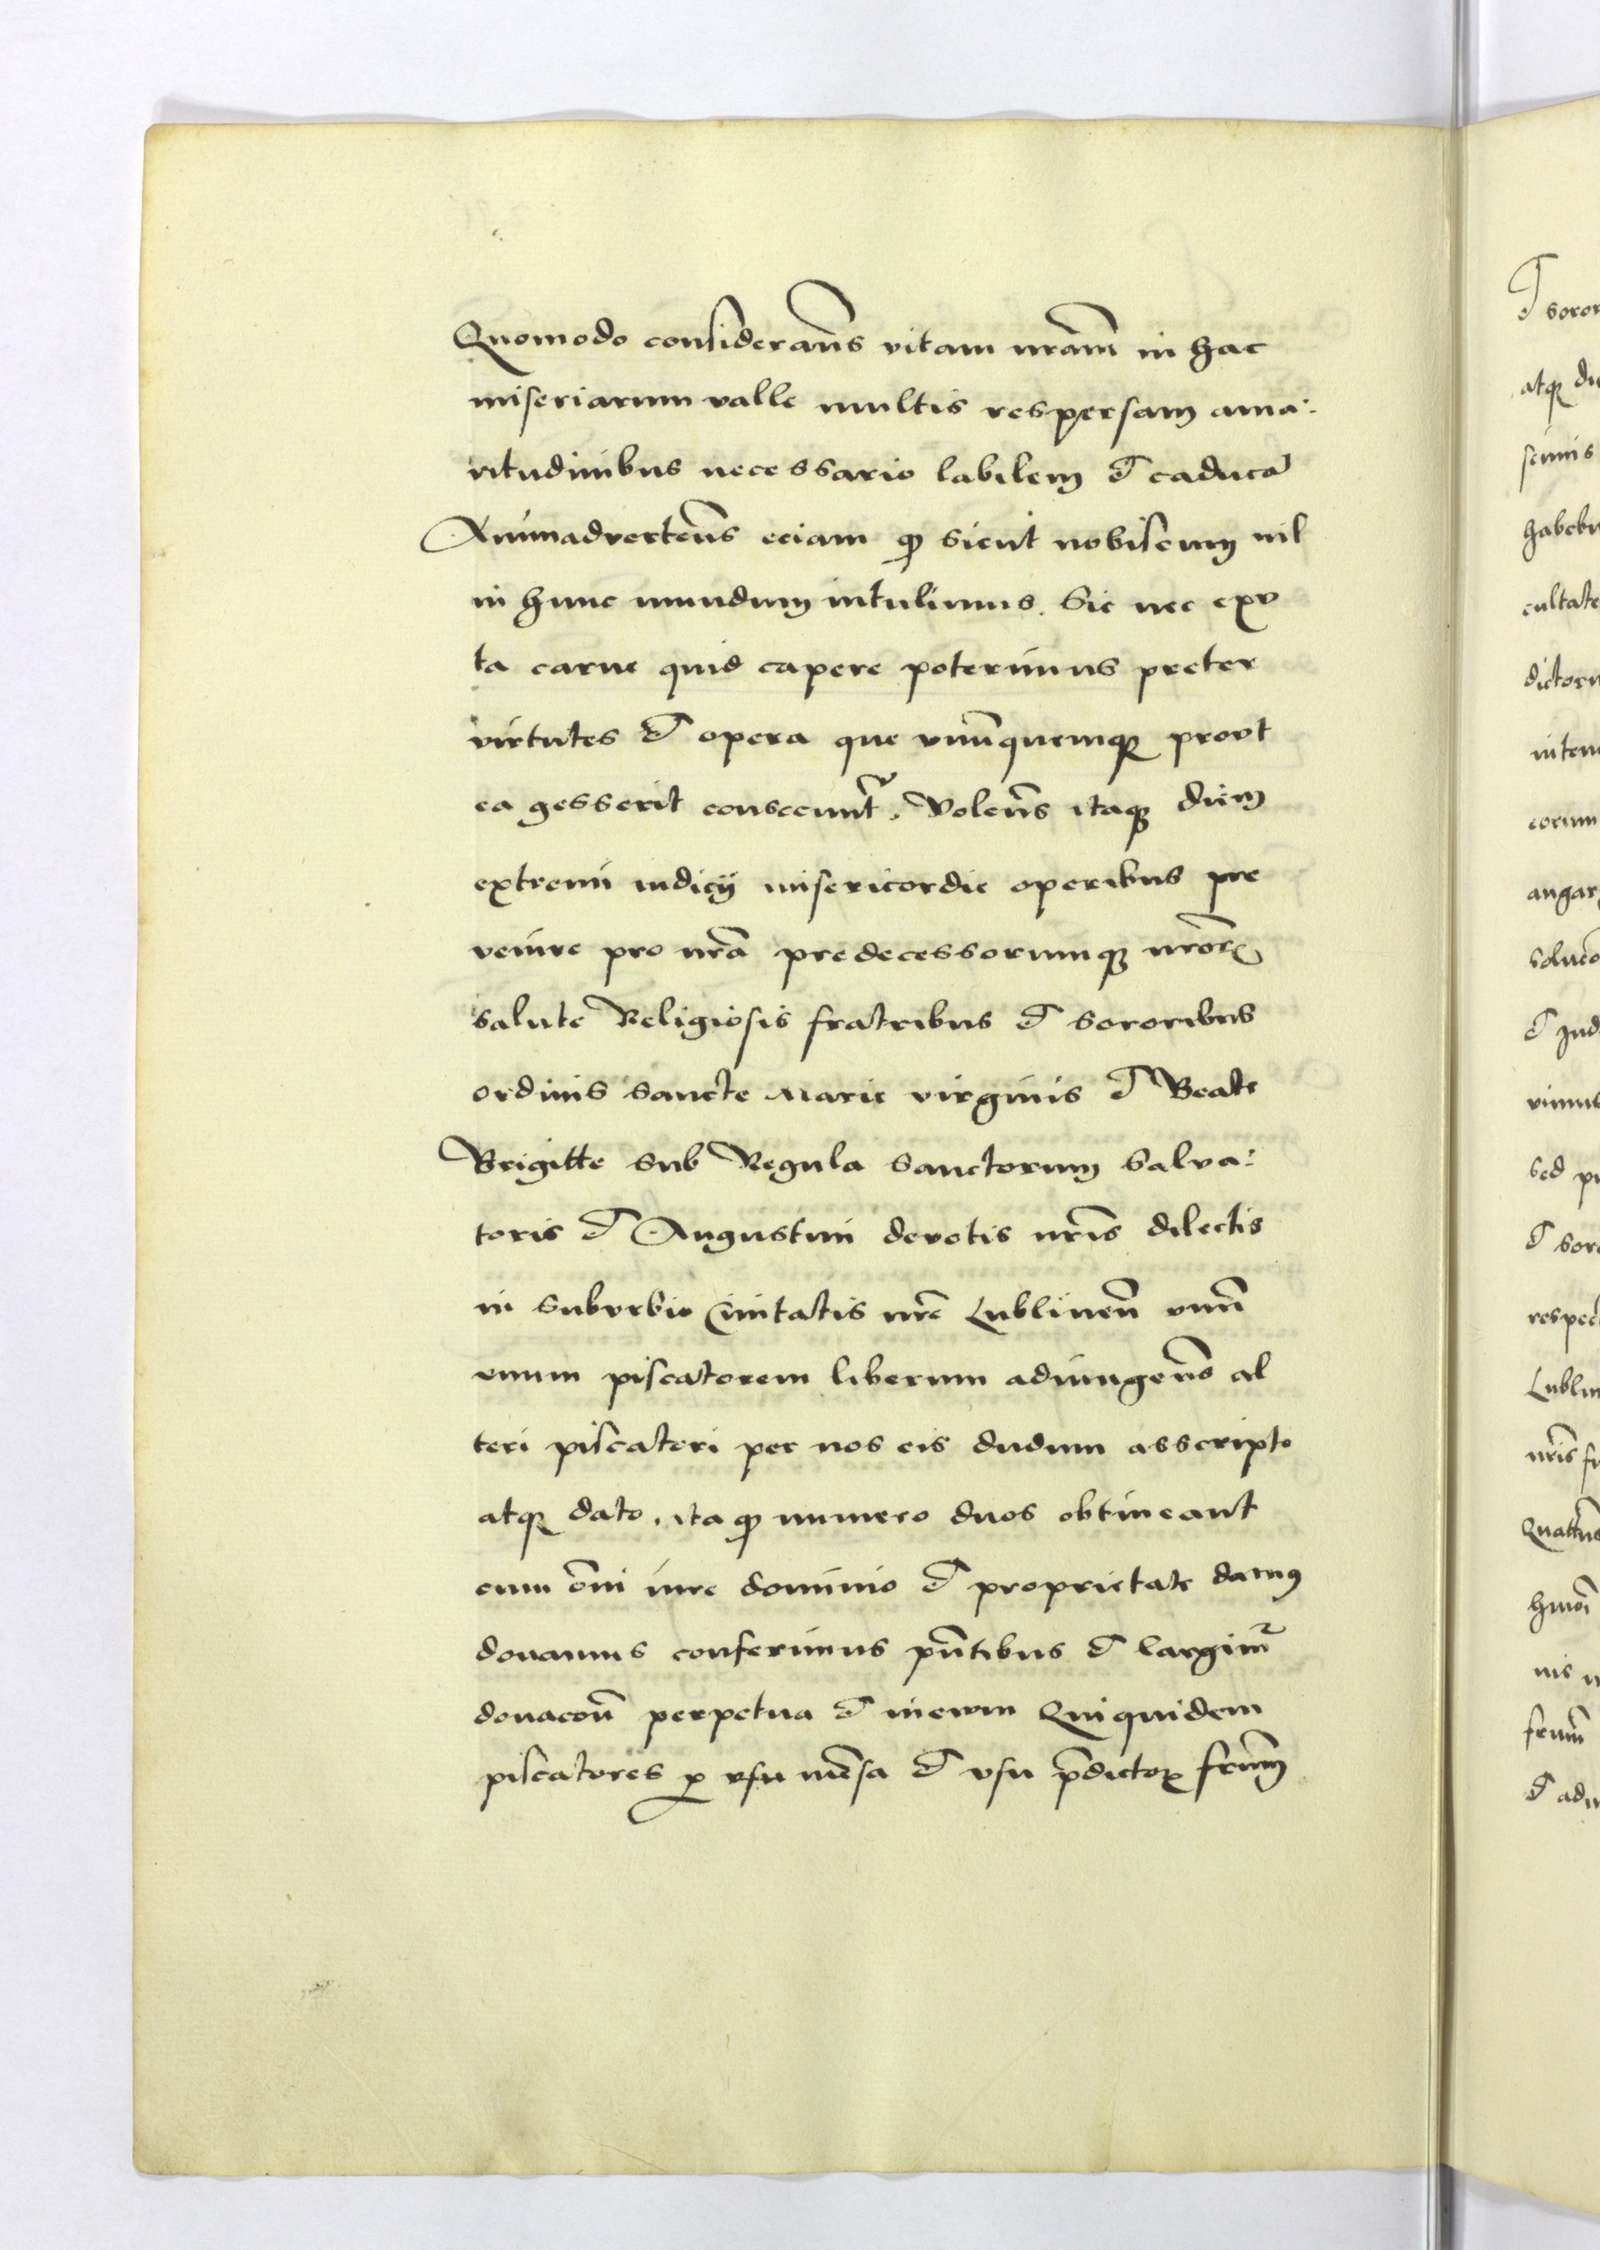 Quomodo considerañs vitam nrãm in hac
miseriarum valle multis respersam ama:
ritudinibus necessario labilem & caducã
Animadverteñs eciam ꝙ sicut nobiscum nil
in hunc mundum intulimus. Sic nec exv
ta carne quid capere poterimus preter
virtutes & opera que vnũquemqꝫ provt
ea gesserit consecunt᷑. Voleñs itaqꝫ diem
extremi iudicij misericordie operibus pre
venire pro nrã predecessorumqꝫ nrõrꝫ
salute Religiosis fratribus & sororibus
ordinis sancte Marie virginis & Beate
Brigitte sub Regula sanctorum Salva:
toris & Augustini devotis nrĩs dilectis
in suburbio Civitatis nrẽ Lublineñ
vnum piscatorem liberum adiungeñs al
teri piscatori per nos eis dudum asscripto
atqꝫ dato. ita ꝙ numero duos obtineant
cum õni iure dominio & proprietate damꝯ
donamus conferimus pñtibus & largim᷑
donacoñ perpetua & in evum Qui quidem
piscatores ꝑ vsu mẽsa & vsu p̃dictoꝝ frũm
& soror
atqꝫ
habebu
cultate
dictoru
eorum
& Ind
sed
& soro
Lublin
nrĩs